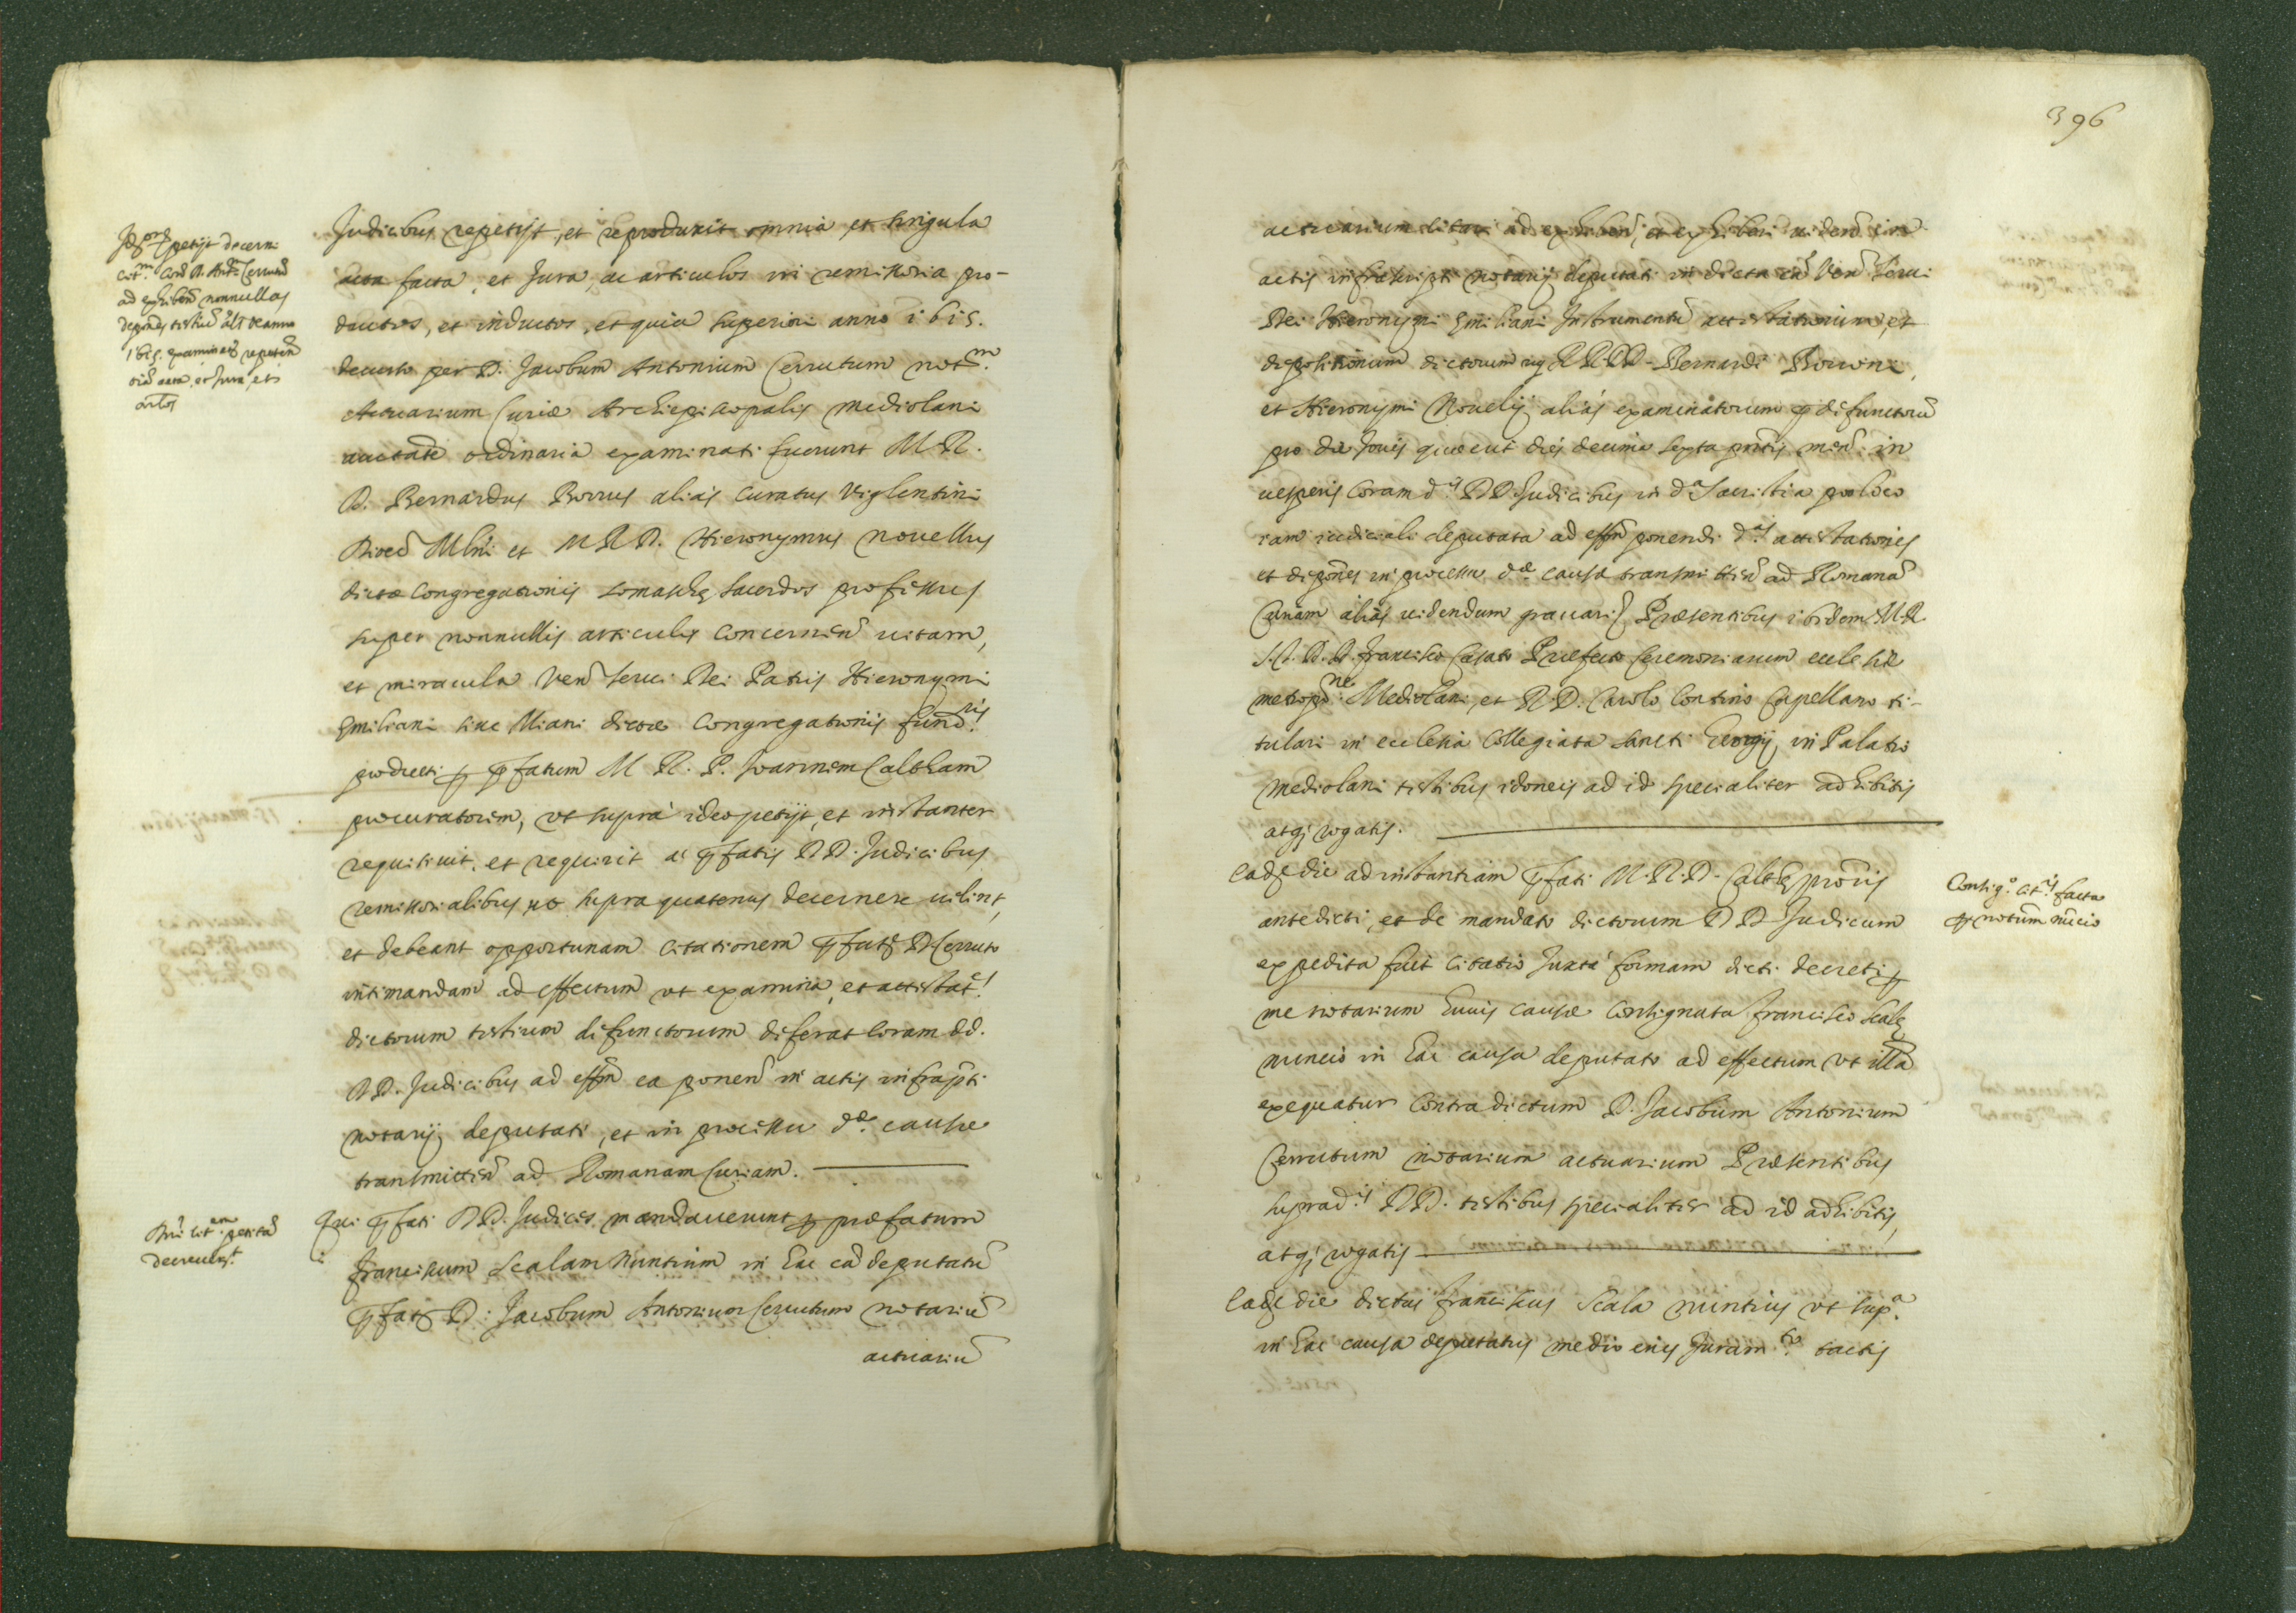 Judicibus repetijt, et reproduxit omnia et singula
acta facta, et Jura, ac articulos in remissoria pro-
ductos, et inductos, et quia superiori anno 1615.
decurso per D. Jacobum Antonium Cerrutum not.m
Actuarium Curiæ Archiepiscopalis Mediolani
auctate ordinaria examinati fuerunt M.R.
D. Bernardus Borrus aliàs Curatus Viglentini
Dioec Mlni et M R D. Hieronymus Novellus
dictæ Congregationis Somaschę sacerdos professus
super nonnullis articulis concernen vitam,
et miracula Ven servi Dei Patris Hieronymi
Emiliani sive Miani dictæ Congregationis fund.ris
producti p pfatum M R. P. Joannem Calcham
procuratorem, ut suprà ideo petijt, et instanter
requisivit, et requirit a pfatis DD. Judicibus
remissorialibus ut supra quatenus decernere velint,
et debeant opportunam citationem pfato D Cerruto
intimandam ad effectum ut examina, et attestat.s
dictorum testium defunctorum deferat coram dd.
DD. Judicibus ad effm ea ponen in actis infrapti
notarij deputati, et in processu d.æ causæ
transmitten ad Romanam Curiam.
Qui pfati DD. Judices mandaverunt p præfatum
Franciscum Scalam Nuntium in hac ca deputatu
pfato D. Jacobum Antonium Cerrutum notariu
actuariu
petijt decerni
cit.m cont D. Ant. Cerrutu
ad exhiben nonnullas
depones testiu als de anno
1615. examinat repeten
oia acta, et Jura, et
artlos
Dni cit.em petita
decreverut
396
actuarium citari ad exhiben, et exhiberi viden in
actis infrascripti notarij deputati in dicta ca Ven servi
Dei Hieronymi Emiliani Instrumentu attestationum, et
depositionum dictorum RR.DD. Bernardi Borroni,
et Hieronymi Novelij aliàs examinatorum p defunctoru
pro die Jovis quæ erit dies decima septa pntis mens in
vesperis coram d.is DD. Judicibus in d.a Sacristia pro loco
iam iudiciali deputata ad effm ponendi d.as attestationes
et depones in processu d.æ causæ transmitten ad Romana
Curiam aliàs videndum gravari Præsentibus ibidem M.R.
J.C. D. D. Francisco Casato Præfecto Ceremoniarum ecclesiæ
metrop.ne Mediolani, et R.D. Carolo Contino Capellano ti-
tulari in ecclesia Collegiata Sancti Georgij in Palatio
Mediolani testibus idoneis ad id specialiter adhibitis
atq; rogatis.
Eadę die ad instantiam pfati M.R.D. Calchę proris
antedicti, et de mandato dictorum DD Judicum
expedita fuit citatio Juxta formam dicti decreti p
me notarium huius causæ consignata Francisco Scalę
nuncio in hac causa deputato ad effectum ut illa
exequatur contra dictum D. Jacobum Antonium
Cerrutum notarium actuarium Præsentibus
suprad.is DD. testibus specialiter ad id adhibitis,
atq; rogatis
Eadę die dictus Franciscus Scala nuntius ut sup.a
in hac causa deputatus medio eius Juram.to tactis
Consig.o cit.is facta
p notum nucio